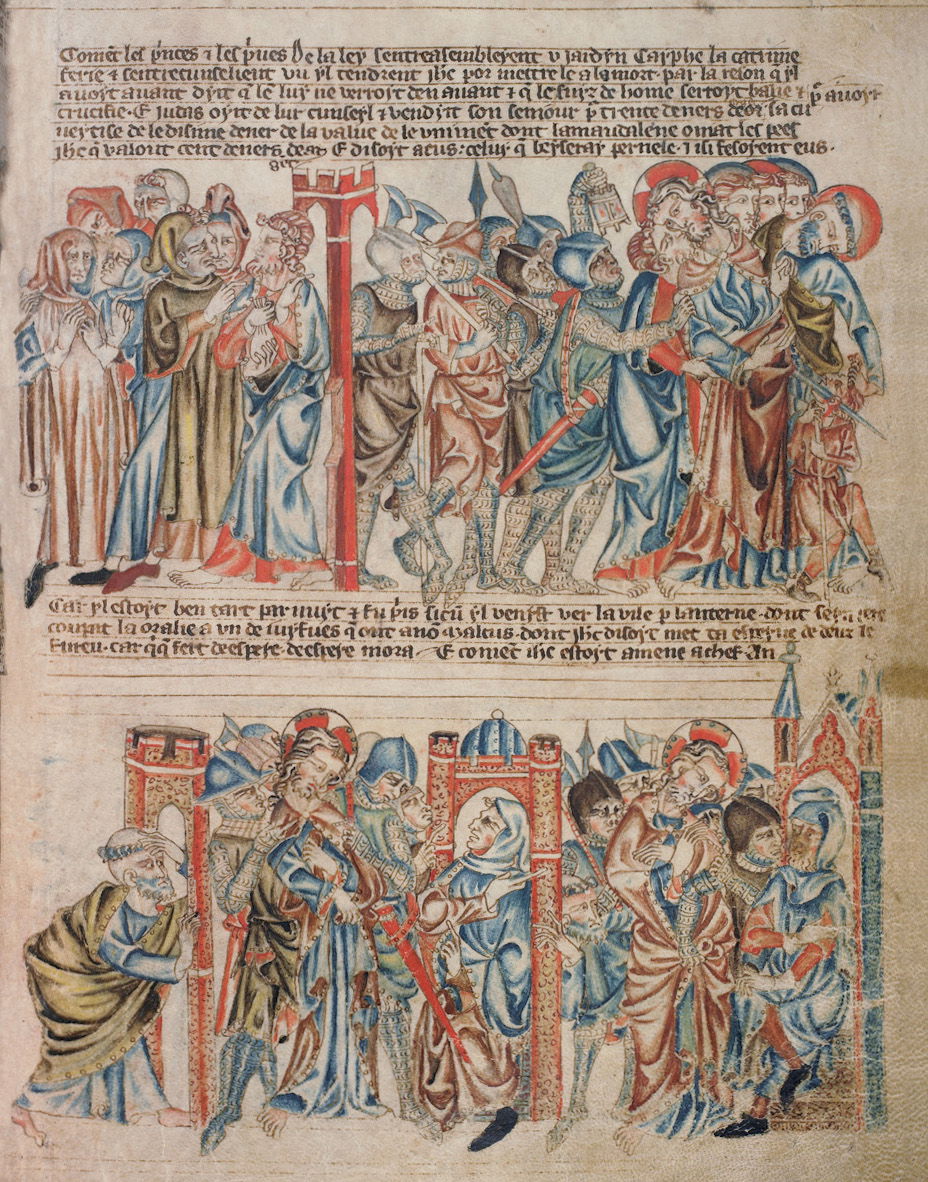 Coment les princes & les prues De la ley sentreasemblerent v jardyn Cayphe la catrime
ferie & sentrecunselient vu yl tendrent ihc por mettre le a le mort. par la reson q yl
avoyt avant dyit q le luy ne verroyt den avant & q le fuiz de home serroyt baile & p avoyt
crucifie. E Judas oyit de lur cunseyl & vendyit son seniour p trente deners de or la cu
veytise de le disime dener de la value de le vniment dont la maudalene oinat les pees
ihc q valoint cent deners de or E disoyt a eus: celuy q beyseray pernele. I isi fesoyent eus.
Car yl estoyt ben tart par nuyt & fu pris sicum yl venist ver la vile p lanterne. dont
coupat la oralie a vn de iuyfues q out anō Malcus. dont ihc disoyt met ta espeye de deuz le
furreu. car qq fert de espeye. de espeye mora. E coment ihc estoyt amene a chef An